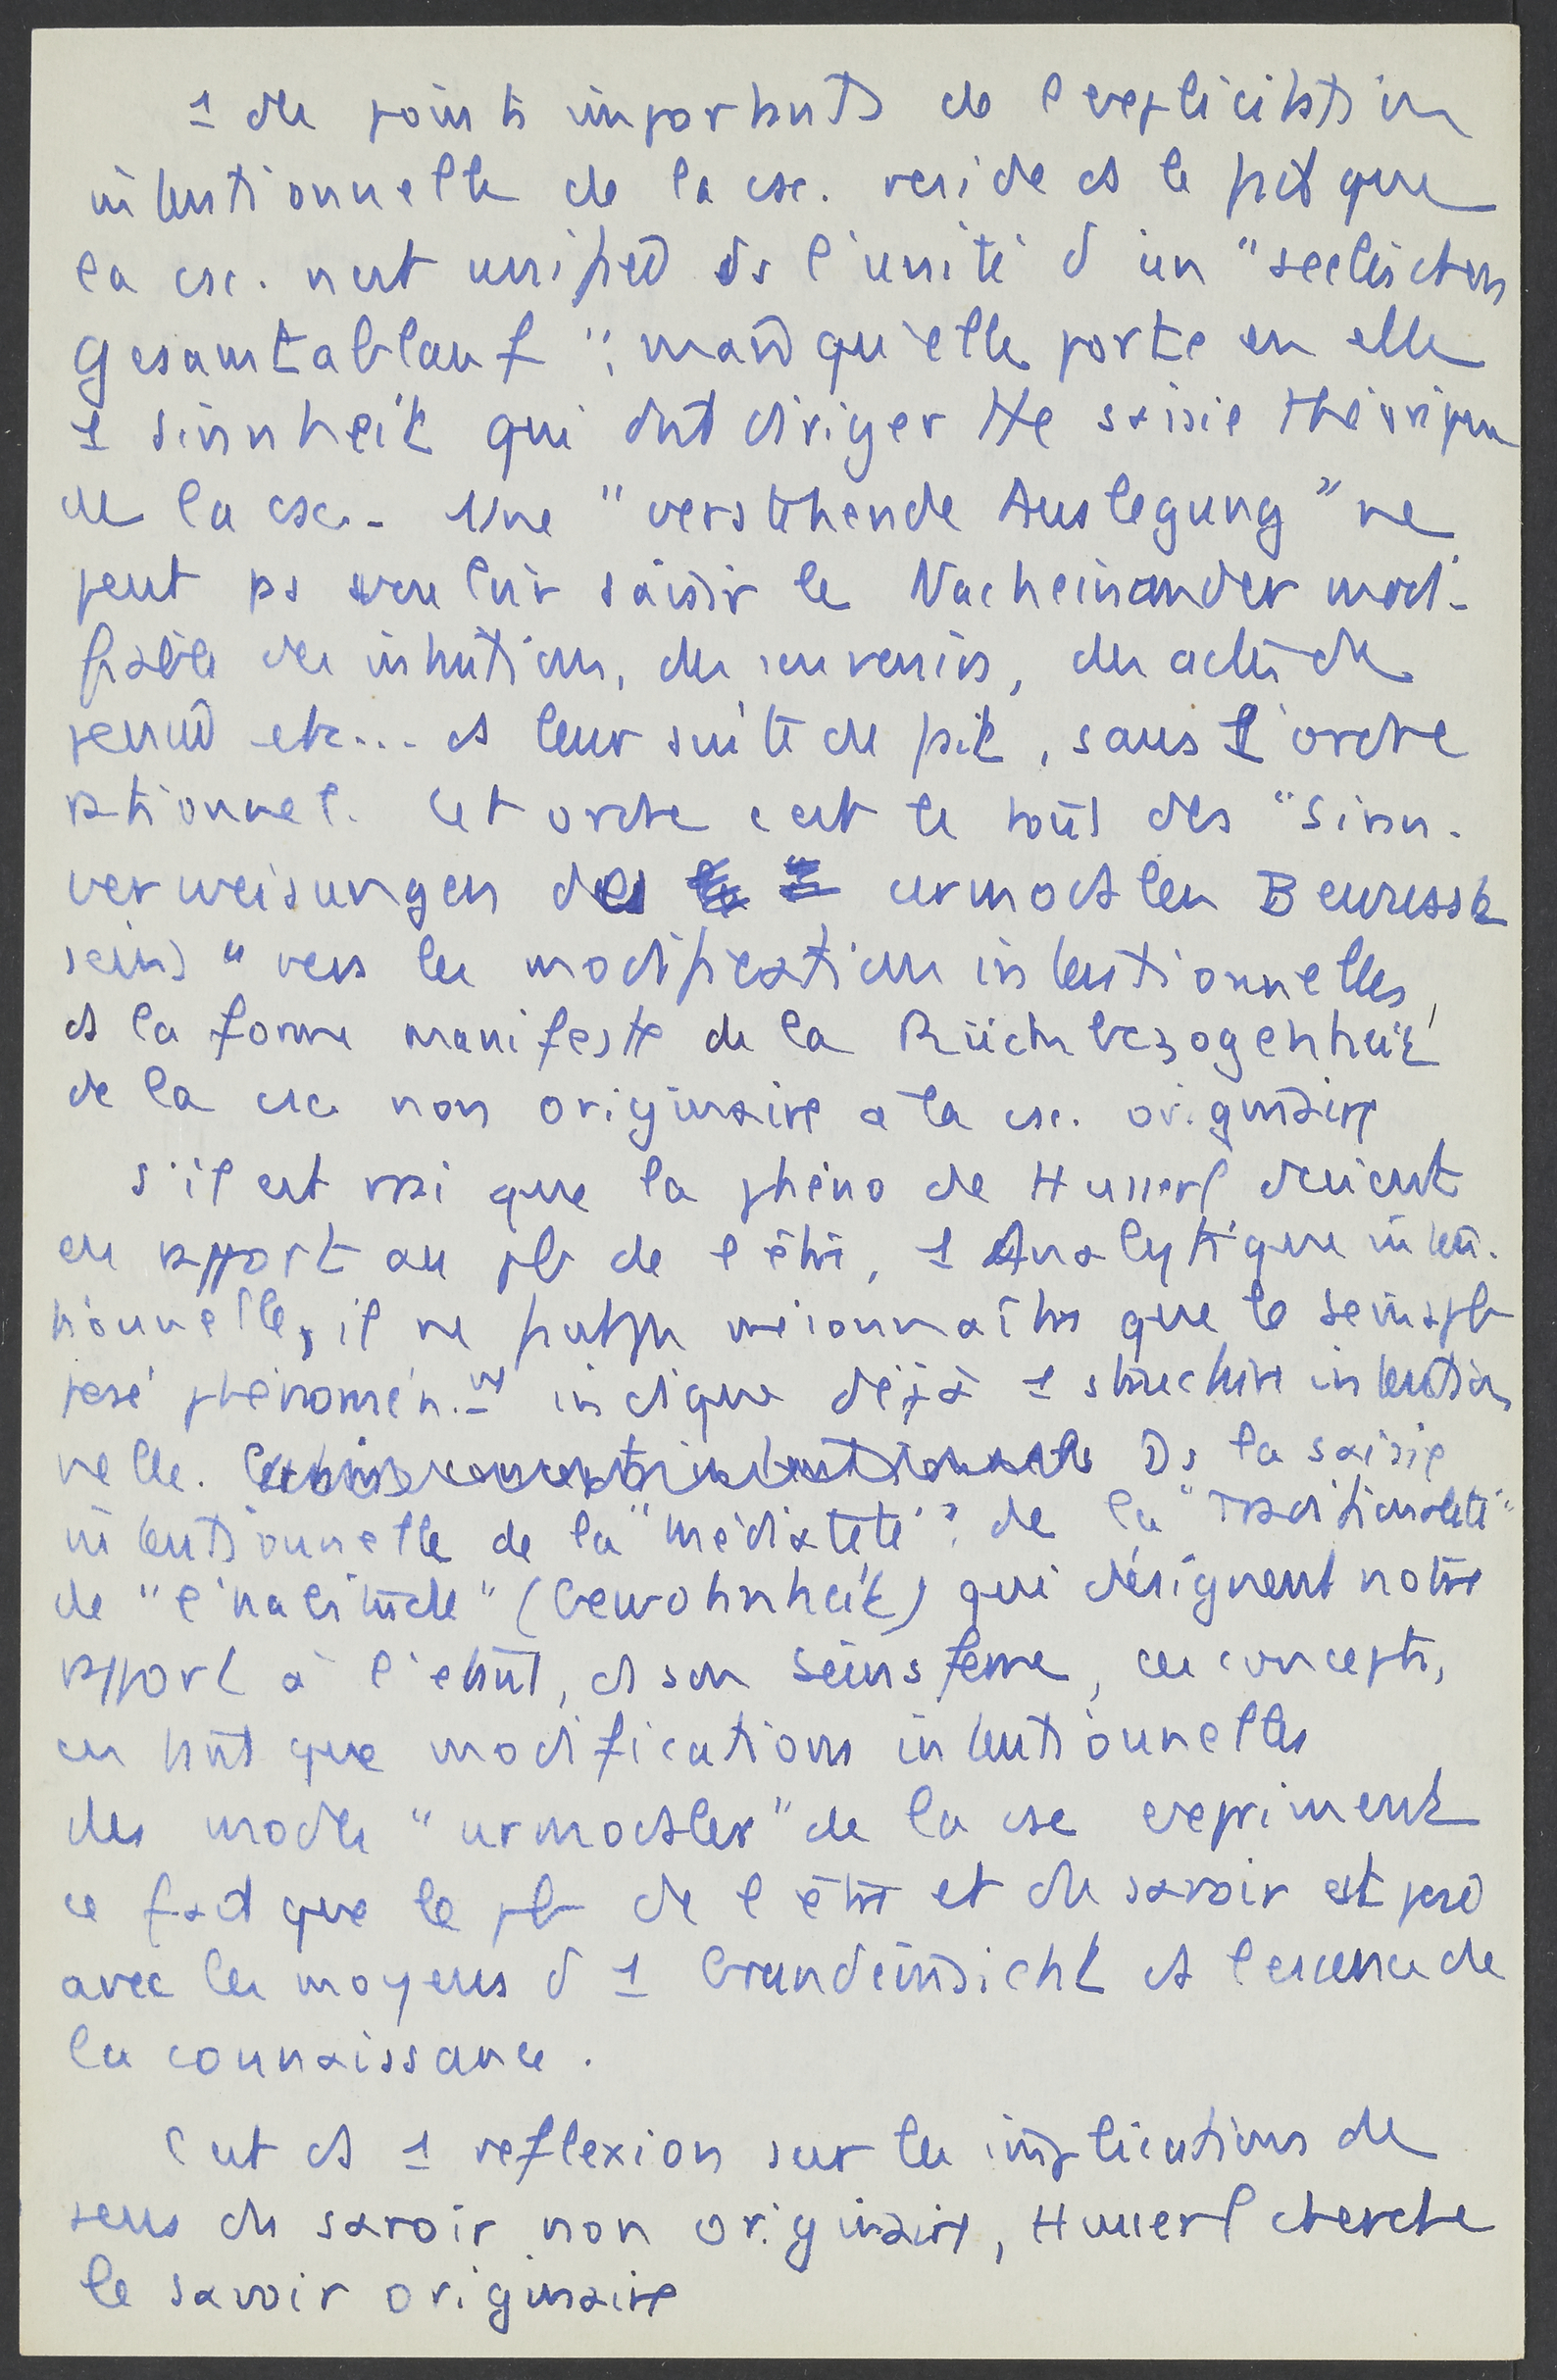 1 des points importants de l'explicitation
intentionnelle de la csc. réside ds le fait que
la csc. n'est unifiée ds l'unité d'un "seelischen
Gesamtablauf", mais qu'elle porte en elle
1 Sinnheit qui doit diriger tte saisie théorique
de la csc. Une "verstehende Auslegung" ne
peut ps vouloir saisir le Nacheinander modi-
fiable des intuitions, des souvenirs, des actes de
pensée etc... ds leur suite de fait, sans 1 ordre
rationnel. Cet ordre c'est le tout des "Sinn-
verweisungen des urmodalen Bewusst
seins" vers les modifications intentionnelles,
ds la forme manifeste de la Rückbezogenheit
de la csc non originaire à la csc. originaire
S'il est vrai que la phéno de Husserl devient
en rapport au pb de l'être, 1 Analytique inten-
tionnelle, il ne faut ps méconnaître que le Seinspb
posé phénomén.nt indique déjà 1 structure intention
nelle. Ds la saisie
intentionnelle de la "médiateté", de la "Traditionalité"
de "l'habitude" (Gewohnheit) qui désignent notre
rapport à l'étant, ds son Seinsferne, ces concepts,
en tant que modifications intentionnelles
des modes "urmodaler" de la csc expriment
ce fait que le pb de l'être et du savoir est posé
avec les moyens d'1 Grundeinsicht ds l'essence de
la connaissance.
C'est ds 1 reflexion sur les implications de
sens du savoir non originaire, Husserl cherche
le savoir originaire